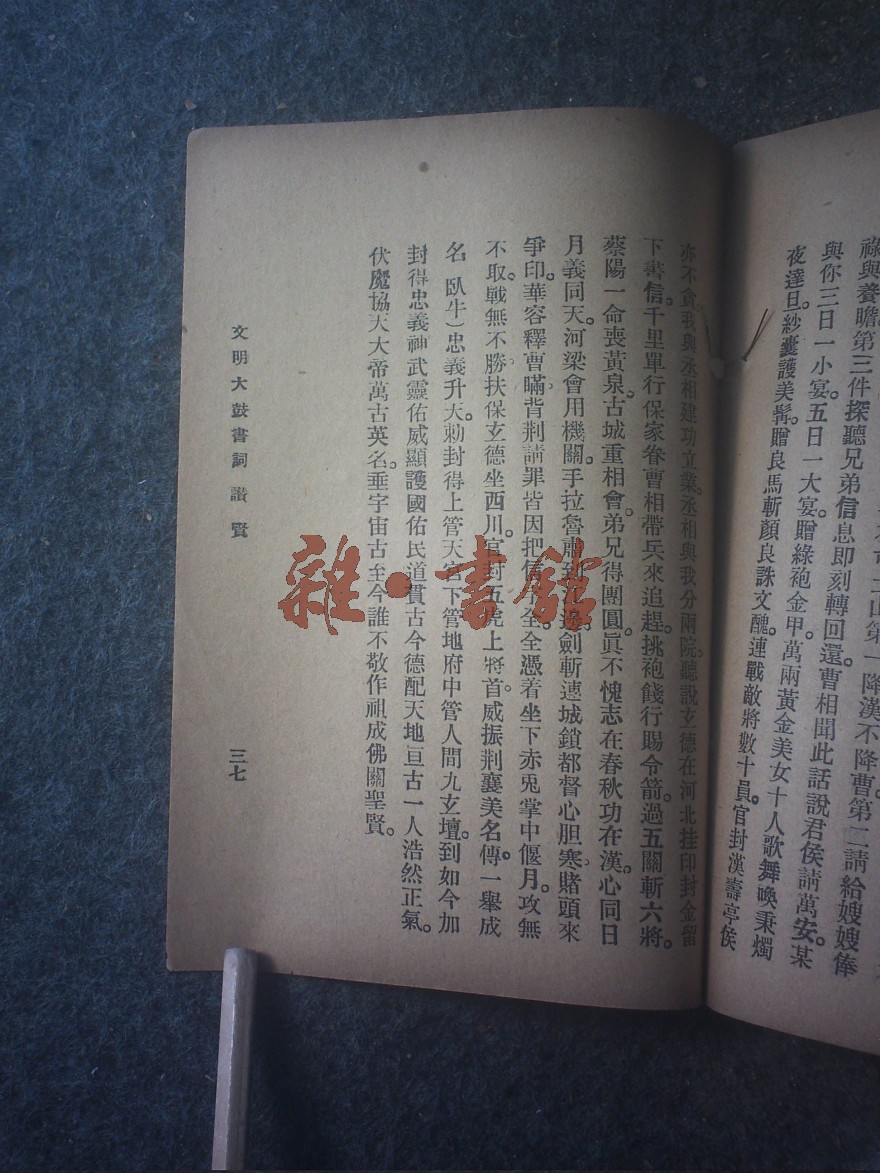 二山第一降漢不降曹第二請給嫂嫂俸
祿與養瞻。第三件探聽兄弟信息卽刻轉回還。曹相聞此話說君侯請萬安。某
與你三日一小宴。五日一大宴。贈綠袍金甲萬兩黃金美女十人歌舞喚秉燭
夜達旦紗囊護美髯。贈良馬斬顏良誅文醜。連戰敵將數十員。官封漢壽亭侯
亦不貪我與丞相建功立業。丞相與我分兩院。聽說玄德在河北挂印封金留
下書信。千里單行保家眷曹相帶兵來追趕。挑袍餞行賜令箭。過五關斬六將。
蔡陽一命喪黃泉。古城重相會。弟兄得團圓。眞不愧志在春秋功在漢。心同日
月義同天。河梁會用機關。手拉魯肅到邊。劍斬連城鎖都督心胆寒。賭頭來
爭印。華容釋曹瞞。背荆請罪皆因把信全。全憑着坐下赤兎掌中偃月。攻無
不取。戰無不勝。扶保玄德坐西川。官封五虎上將首。威振荆襄美名傳。一舉成
名（臥牛）忠義升天。勅封得上管天宮下管地府中管人間九玄壇。到如今加
封得忠義神武靈佑威顯護國佑民道貫古今德配天地亘古一人浩然正氣。
伏魔協天大帝萬古英名垂宇宙古至今誰不敬作祖成佛關聖賢。
文明大鼓書詞 讚賢
三七
雜·書館